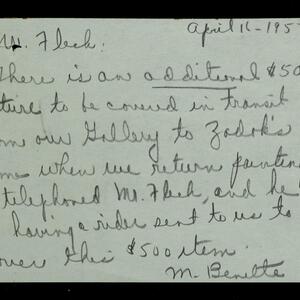 April 16-195
Mr. Fleck:
There is an additional $50
ture to be covered in transit
om our Gallery to Zadok's
me when we return painting
telephoned Mr. Fleck, and he
having a rider sent to us to
over this $500 item.
M. Benette